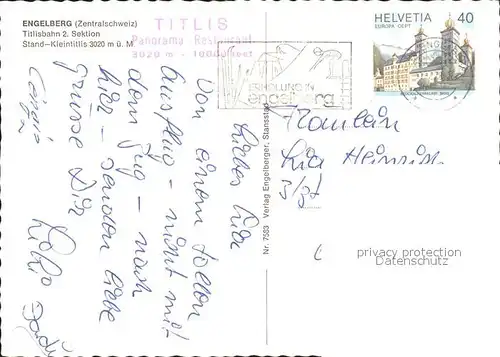 ENGELBERG (Zentralschweiz)
Titlisbahn 2. Sektion
Stand–Kleintitlis 3020 m ü. M
TITLIS
Panorama Restaurant
3020 m - 10000 feet
ERHOLUNG IN
engelberg
HELVETIA 40
EUROPA CEPT
Liebes Lia
Von einem tollen
Ausflug – nicht mit
dem Zug – nach
hier – senden liebe
Grüsse Dir
Nr. 7583 Verlag Engelberger, Stansstad
Fräulein
Lia Heinrich
privacy protection
Datenschutz